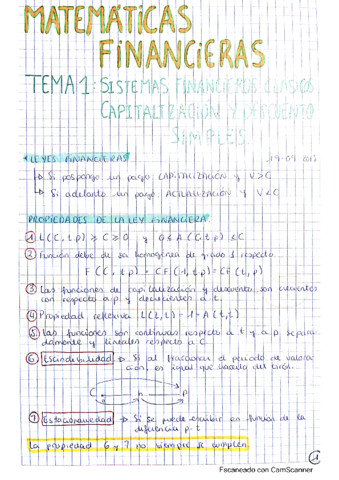 MATEMÁTICAS
FINANCIERAS
TEMA 1: SISTEMAS FINANCIEROS CLÁSICOS
CAPITALIZACIÓN Y DESCUENTO
SIMPLES.
LEYES FINANCIERAS
Si pospongo un pago: CAPITALIZACIÓN y V>C
Si adelanto un pago: ACTUALIZACIÓN y V<C
PROPIEDADES DE LA LEY FINANCIERA
① L(C,t,p) ≥ C ≥ 0 y 0 ≤ A(C,t,p) ≤ C
② Función debe de ser homogenea de grado 1 respecto
F(C,t,p) = C·F(1,t,p) = C·F(t,p)
③ Las funciones de capitalización y descuento son crecientes
con respecto a p y decrecientes a t.
④ Propiedad reflexiva L(t,t) = 1 = A(t,t)
⑤ Las funciones son continuas respecto a t y a p separa-
damente y lineales respecto a C.
⑥ Escindibilidad → Si al fraccionar el periodo de valora-
ción, es igual que hacerlo del
C h p
⑦ Estacionariedad → Si se puede escribir en función de la
diferencia p-t
La propiedad 6 y 7 no siempre se cumplen
1
Escaneado con CamScanner